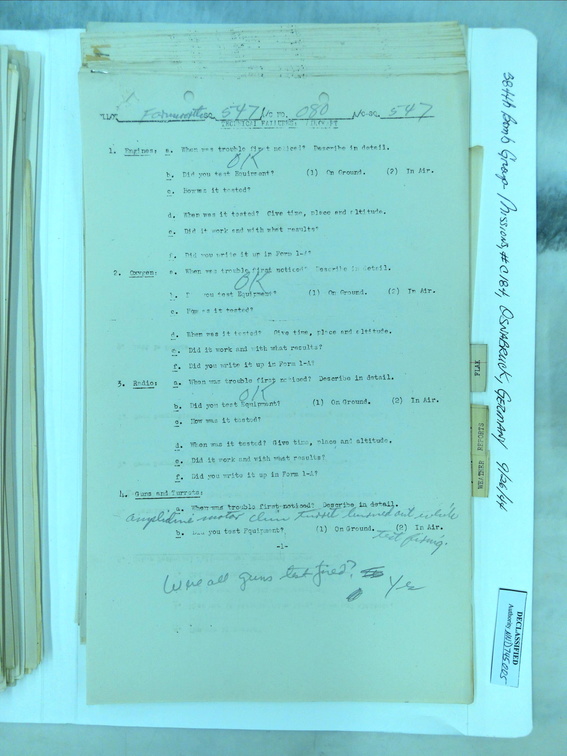 547 A/C NO. 080 547
TECHNICAL FAILURES
1. Engines: a. When was trouble first noticed? Describe in detail.
OK
b. Did you test Equipment? (1) On Ground. (2) In Air.
c. How was it tested?
d. When was it tested? Give time, place and altitude.
e. Did it work and with what results?
f. Did you write it up in Form 1-A?
2. Oxygen: a. When was trouble first noticed? Describe in detail.
OK
b. Did you test Equipment? (1) On Ground. (2) In Air.
c. How was it tested?
d. When was it tested? Give time, place and altitude.
e. Did it work and with what results?
f. Did you write it up in Form 1-A?
3. Radio: a. When was trouble first noticed? Describe in detail.
OK
b. Did you test Equipment? (1) On Ground. (2) In Air.
c. How was it tested?
d. When was it tested? Give time, place and altitude.
e. Did it work and with what results?
f. Did you write it up in Form 1-A?
4. Guns and Turrets:
a. When was trouble first noticed? Describe in detail.
amplidine motor chin turret burned out while
test firing.
b. Did you test Equipment? (1) On Ground. (2) In Air.
-1-
Were all guns test fired? Yes
384th Bomb Group / Missions, #C184, OSNABRUCK, GERMANY 9/26/44
FLAK
REPORTS
WEATHER
DECLASSIFIED
Authority NND 745005